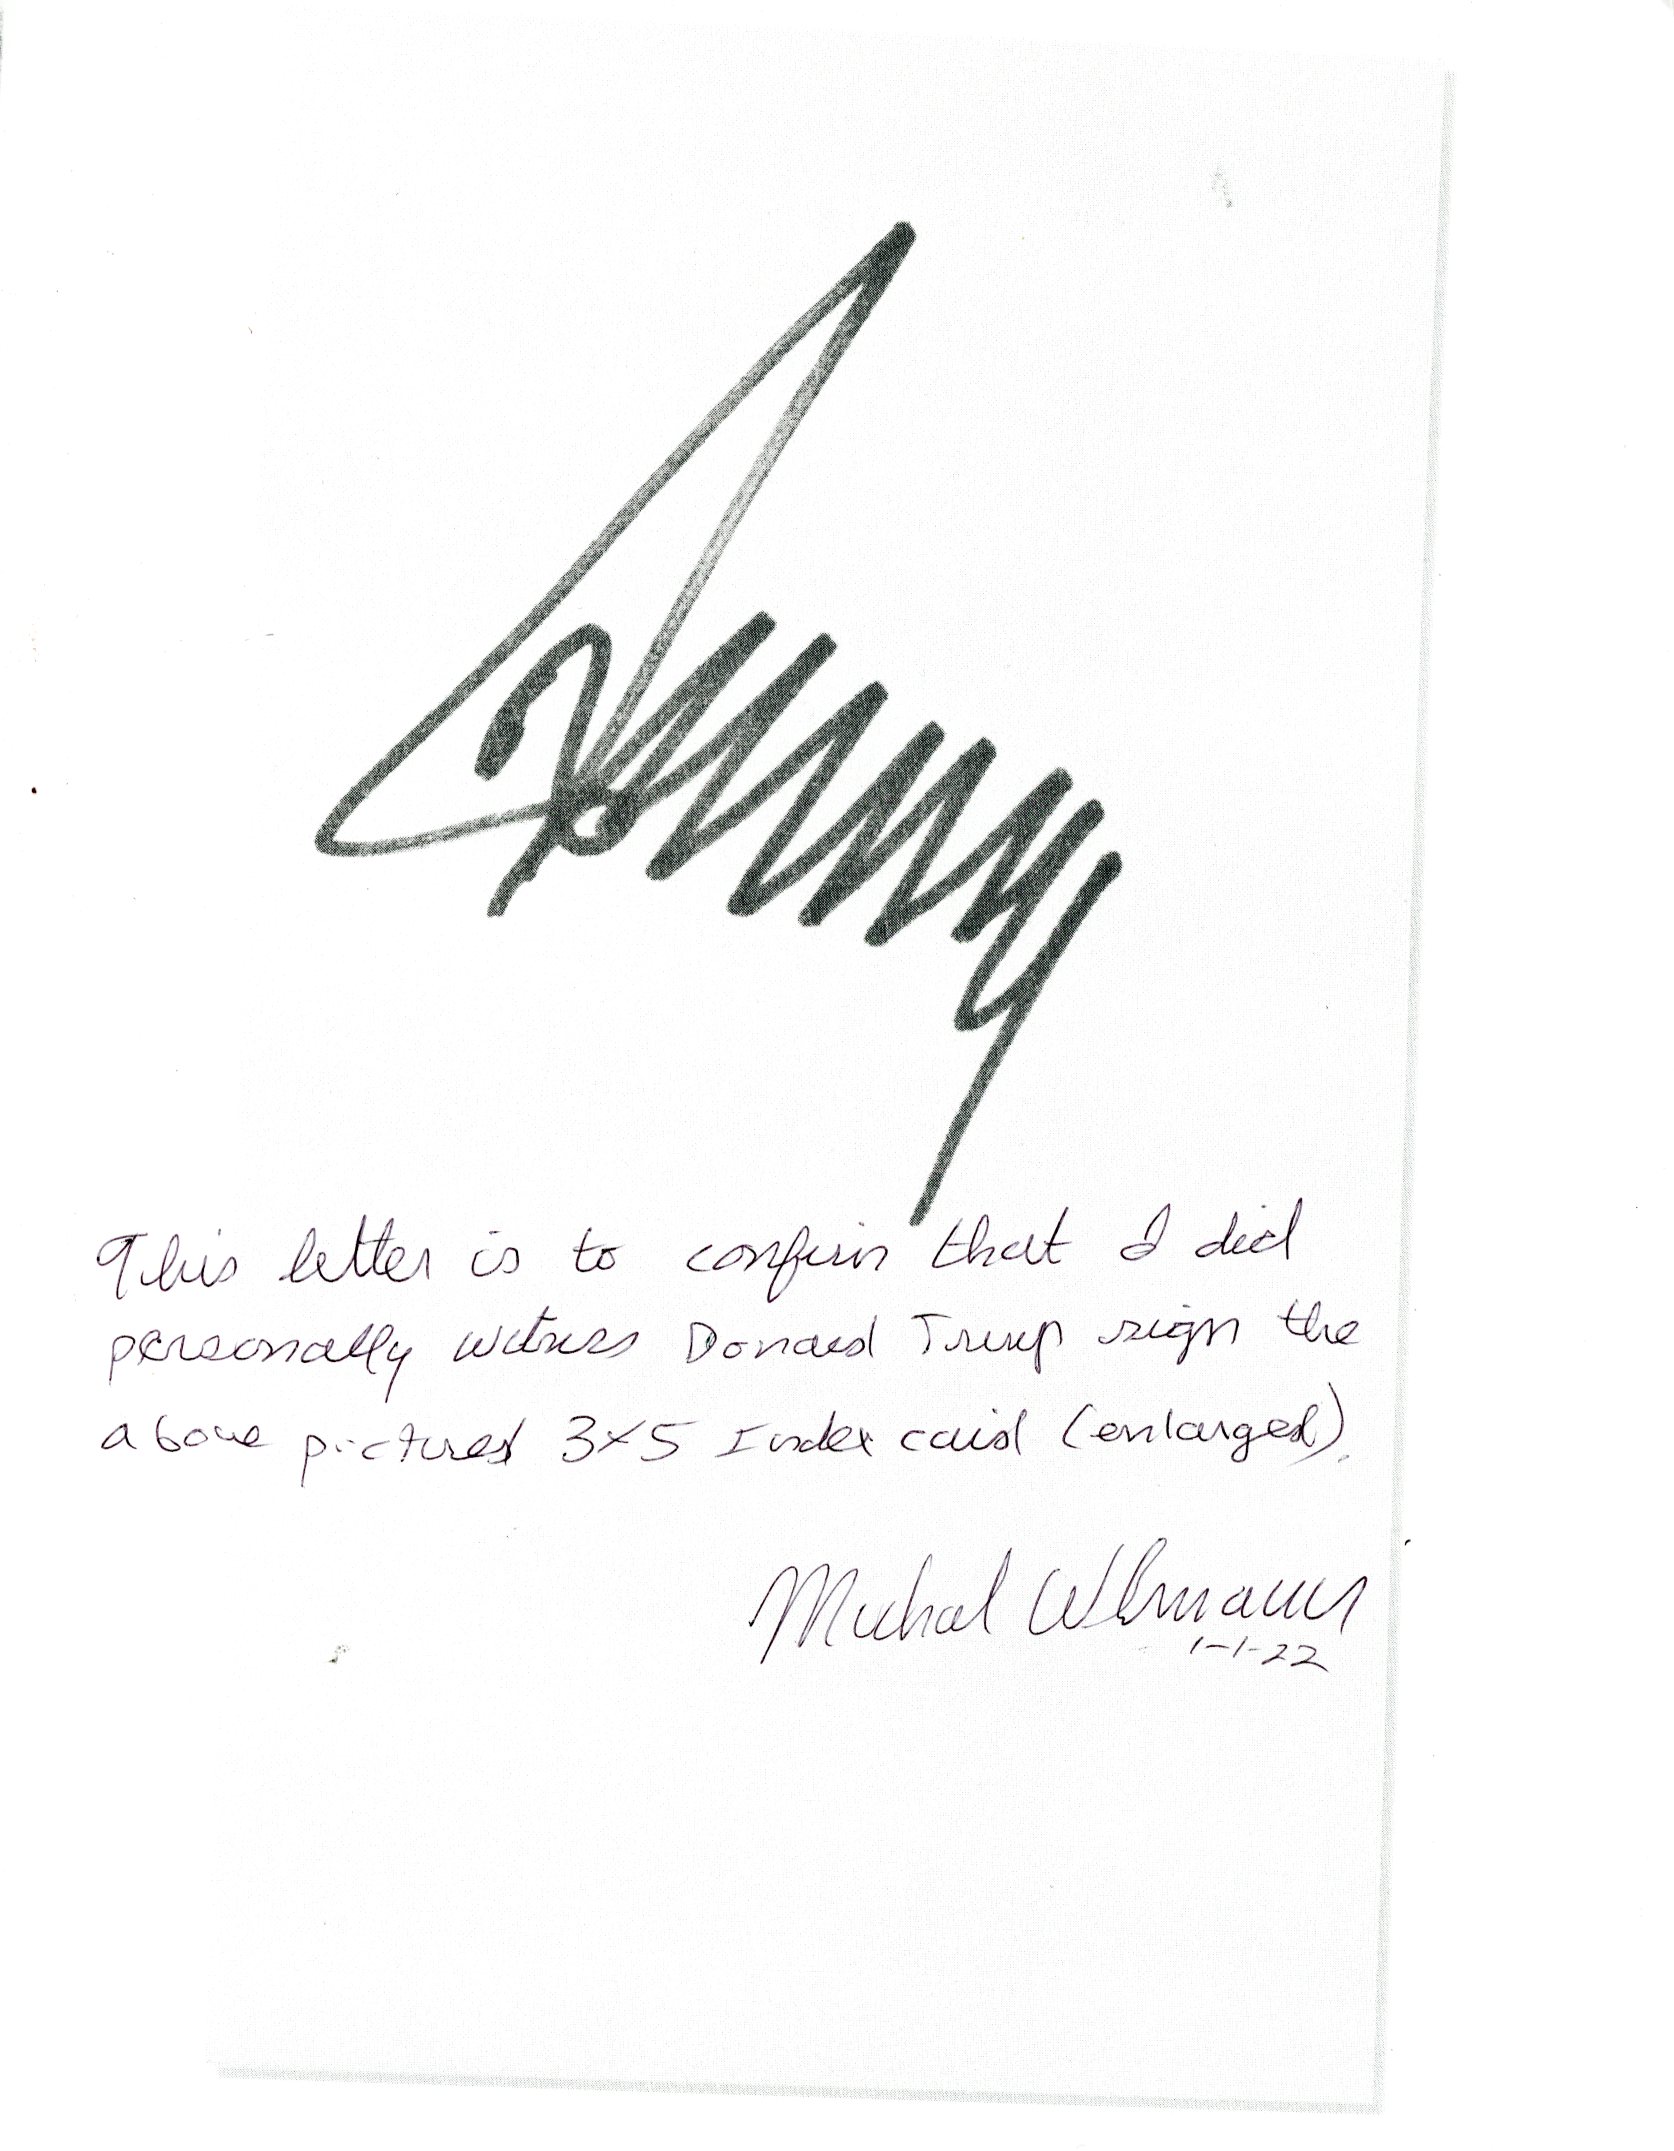 This letter is to confirm that I did
personally witness Donald Trump sign the
above pictured 3x5 Index card (enlarged).
Michael
1-1-22